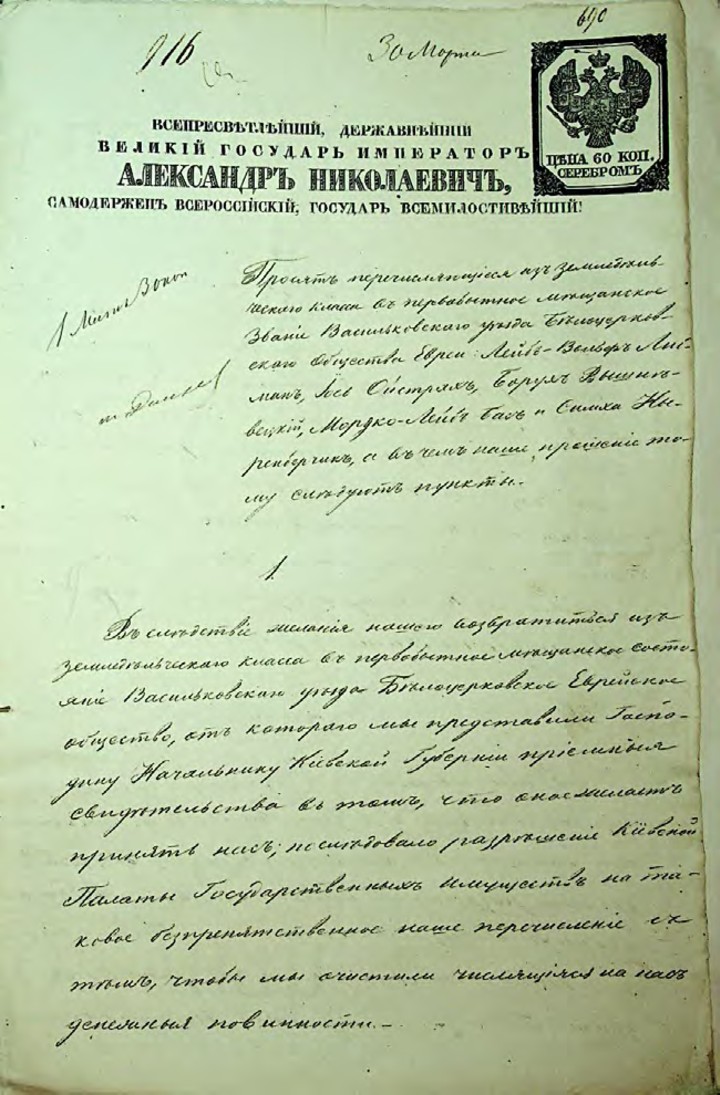 690
916
30 Марта
ЦѢНА 60 КОП.
СЕРЕБРОМЪ
ВСЕПРЕСВѢТЛѢЙШІЙ, ДЕРЖАВНѢЙШІЙ
ВЕЛИКІЙ ГОСУДАРЬ ИМПЕРАТОРЪ
АЛЕКСАНДРЪ НИКОЛАЕВИЧЪ,
САМОДЕРЖЕЦЪ ВСЕРОССІЙСКІЙ, ГОСУДАРЬ ВСЕМИЛОСТИВѢЙШІЙ!
Просятъ перечисляющіеся изъ земледѣль-
ческаго класса въ первобытное мѣщанское
званіе Васильковскаго уѣзда Бѣлоцерков-
скаго Общества Евреи: Лейбъ-Вольфъ
Іось Ойстрахъ, Борухъ
Мордко-Лейбъ Басъ и Симха
а въ чемъ наше прошеніе то-
му слѣдуютъ пункты.
1.
Въ слѣдствіе желанія нашего возвратиться изъ
земледѣльческаго класса въ первобытное мѣщанское состо-
яніе Васильковскаго уѣзда Бѣлоцерковское Еврейское
общество, отъ котораго мы представили Госпо-
дину Начальнику Кіевской Губерніи пріемныя
свидѣтельства въ томъ, что оное желаетъ
принять насъ; послѣдовало разрѣшеніе Кіевской
Палаты Государственныхъ Имуществъ на та-
ковое безпрепятственное наше перечисленіе съ
тѣмъ, чтобы мы очистили числящіяся на насъ
денежныя повинности.—